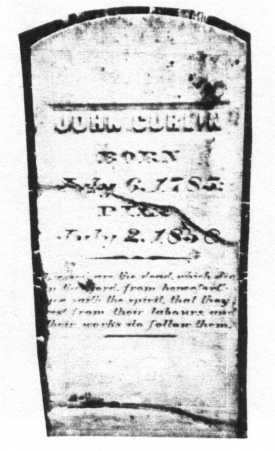 JOHN
BORN
July 6. 1785
DIED
July 2. 1858
are the dead, which die
the Lord, from
saith the spirit, that they
rest from their labours and
their works do follow them.